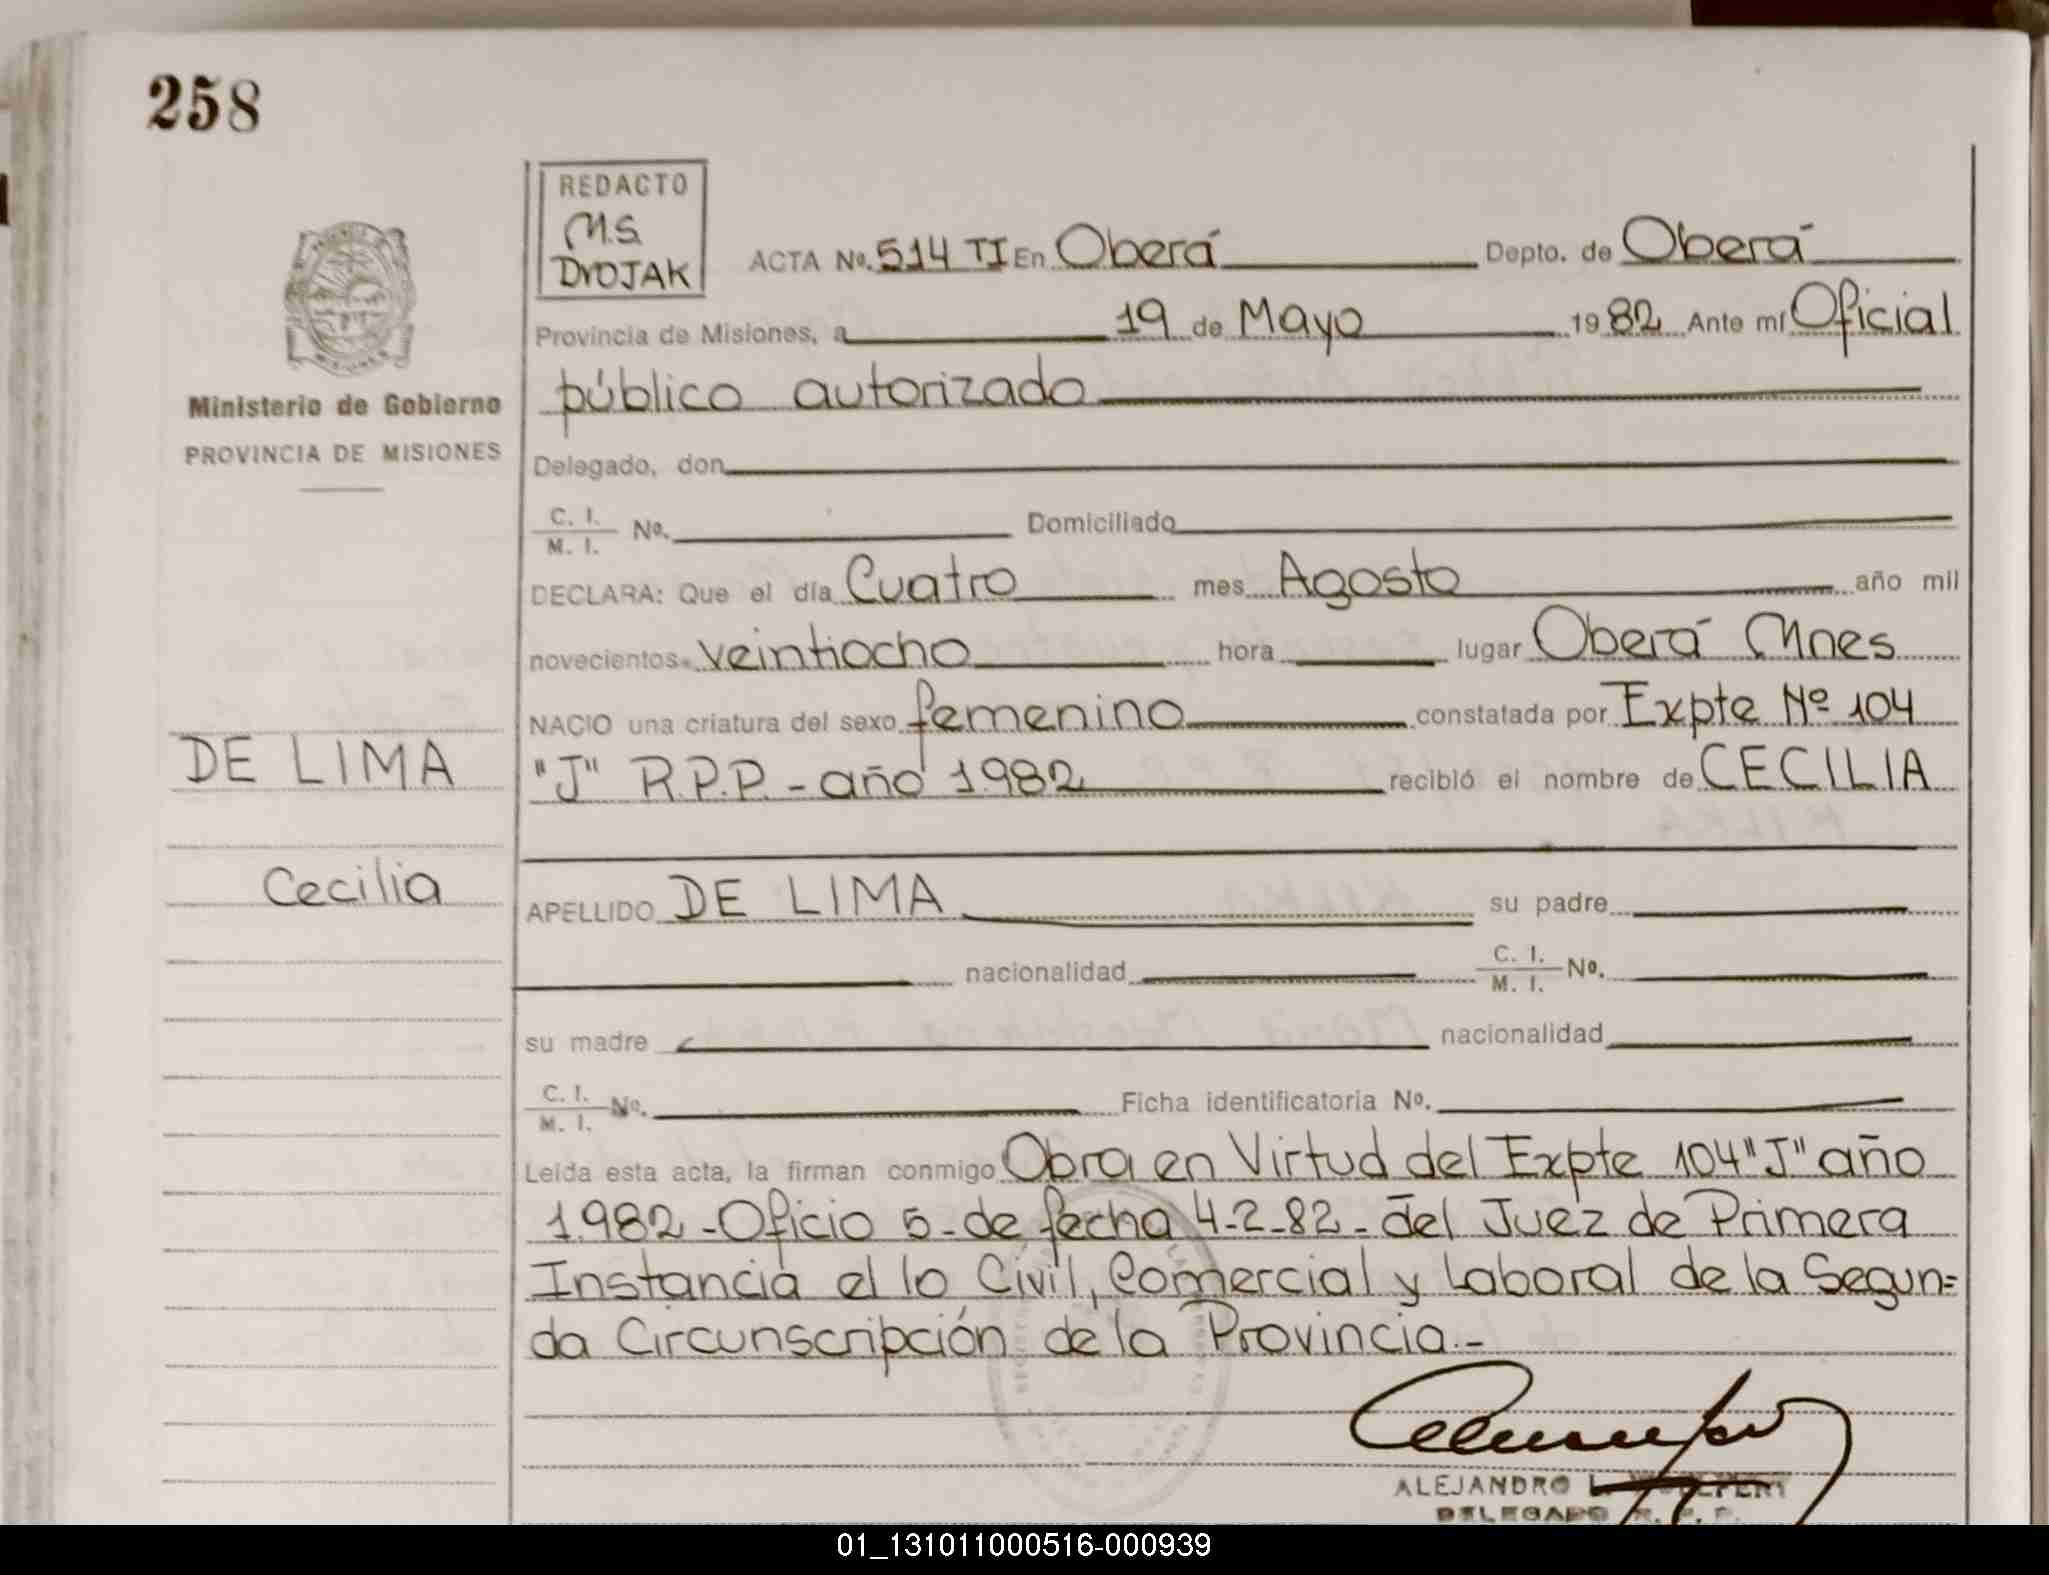 258
REDACTO
M.S.
DVOJAK
ACTA Nº. 514 TI En Oberá Depto. de Oberá
Provincia de Misiones, a 19 de Mayo 1982 Ante mí Oficial
público autorizado
Ministerio de Gobierno
PROVINCIA DE MISIONES
Delegado, don
C. I.
M. I. Nº. Domiciliado
DECLARA: Que el día Cuatro mes Agosto año mil
novecientos veintiocho hora lugar Oberá Mnes
NACIO una criatura del sexo femenino constatada por Expte Nº 104
"J" R.P.P. - año 1.982 recibió el nombre de CECILIA
DE LIMA
Cecilia
APELLIDO DE LIMA su padre
nacionalidad C. I.
M. I. Nº.
su madre nacionalidad
C. I.
M. I. Nº. Ficha identificatoria Nº.
Leida esta acta, la firman conmigo Obra en Virtud del Expte 104 "J" año
1.982 - Oficio 5 - de fecha 4-2-82 - del Juez de Primera
Instancia el lo Civil, Comercial y Laboral de la Segun=
da Circunscripción de la Provincia.-
ALEJANDRO L.
DELEGADO R. P. P.
01_131011000516-000939